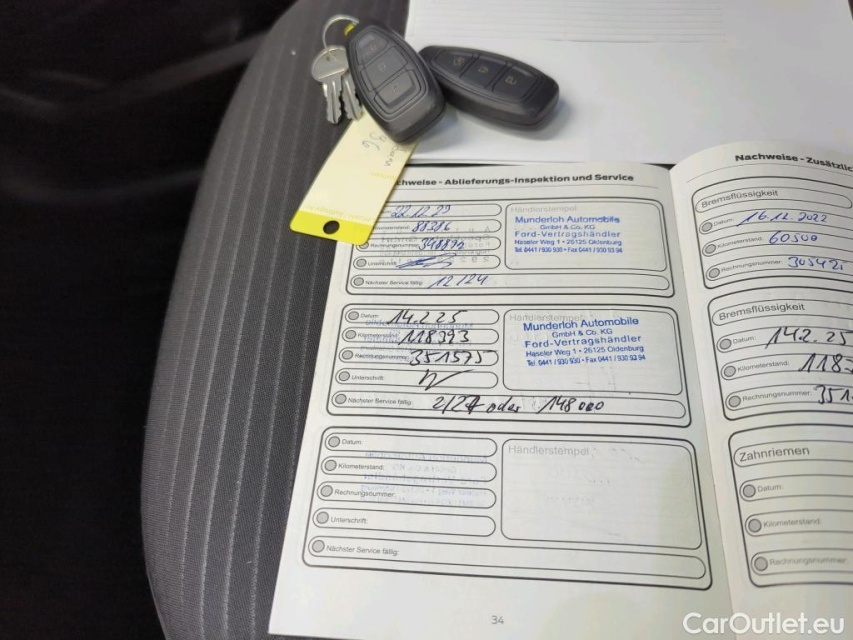 chweise - Ablieferungs-Inspektion und Service
22.12.23
88386
348872
Unterschrift:
Nächster Service fällig: 12/24
Händlerstempel
Munderloh Automobile
GmbH & Co. KG
Ford-Vertragshändler
Heseler Weg 1 • 26125 Oldenburg
Tel. 0441 / 930 930 • Fax 0441 / 930 93 94
Datum: 14.2.25
Kilometerstand: 118393
Rechnungsnummer: 351575
Unterschrift:
Nächster Service fällig: 2/27 oder 148000
Händlerstempel
Munderloh Automobile
GmbH & Co. KG
Ford-Vertragshändler
Heseler Weg 1 • 26125 Oldenburg
Tel. 0441 / 930 930 • Fax 0441 / 930 93 94
Datum:
Kilometerstand:
Rechnungsnummer:
Unterschrift:
Nächster Service fällig:
Händlerstempel
34
Nachweise - Zusätzlic
Bremsflüssigkeit
Datum: 16.12.2022
Kilometerstand: 60500
Rechnungsnummer: 305421
Bremsflüssigkeit
Datum: 14.2.25
Kilometerstand: 1183
Rechnungsnummer: 351
Zahnriemen
Datum:
Kilometerstand:
Rechnungsnummer:
CarOutlet.eu